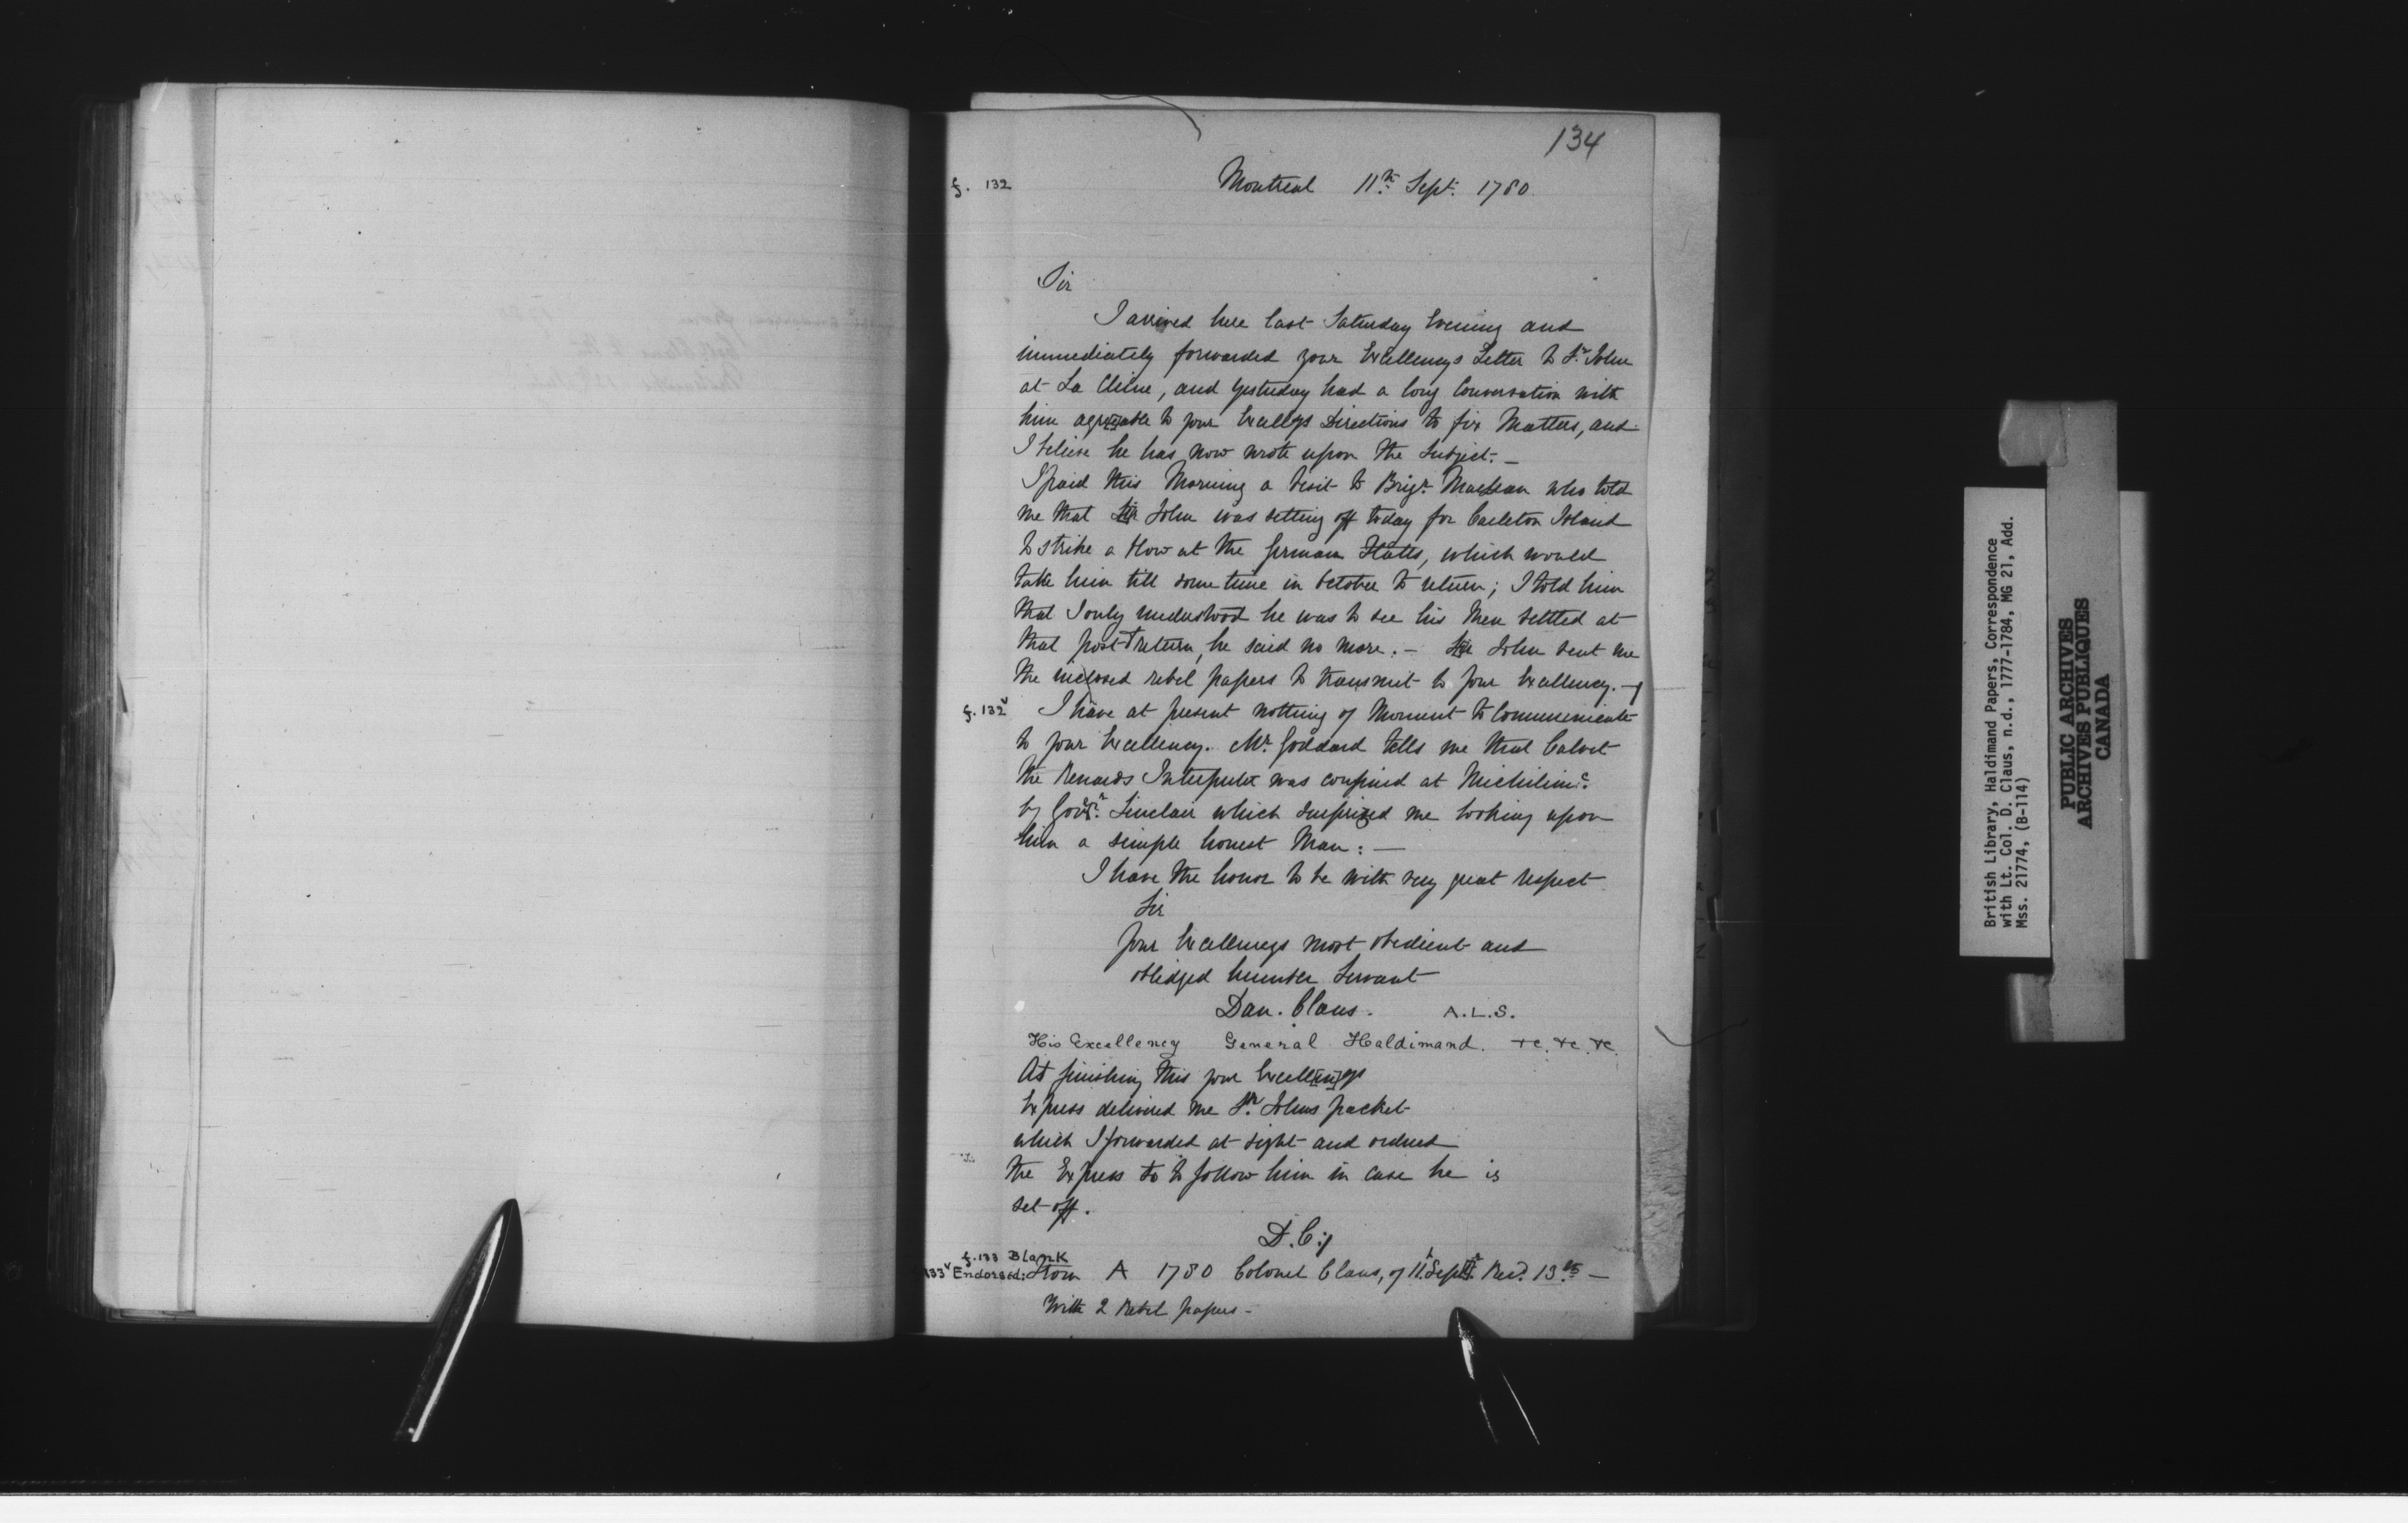 134
f. 132
Montreal 11th Sept. 1780.
Sir
I arrived here last Saturday Evening and
immediately forwarded your Excellencys Letter to Sr. John
at La Chine, and yesterday had a long Conversation with
him agreeable to your Excellys Directions to fix Matters, and
I believe he has now wrote upon the Subject. —
I paid this Morning a visit to Brigr. Maclean who told
me that Sir John was setting off today for Carleton Island
to strike a blow at the German Flatts, which would
take him till some time in October to return; I told him
that I only understood he was to see his Men settled at
that post & return, he said no more. — Sir John sent me
the inclosed rebel papers to transmit to your Excellency. —
f. 132v I have at present nothing of Moment to Communicate
to your Excellency. Mr. Goddard tells me that Calvet
the Renards Interpreter was confined at Michilimc.
by Govr. Sinclair which surprized me looking upon
him a simple honest Man: —
I have the honor to be with very great respect
Sir
Your Excellencys most obedient and
obledged humble Servant
Dan. Claus. A.L.S.
His Excellency General Haldimand. &c. &c. &c.
At finishing this your Excellencys
Express delivered me Sr. Johns packet
which I forwarded at sight and ordered
the Express to to follow him in case he is
set off.
D.C:
f. 133 Blank
133v Endorsed: From A 1780 Colonel Claus, of 11th Septr. Recd. 13th —
With 2 Rebel papers —
British Library, Haldimand Papers, Correspondence
with Lt. Col. D. Claus, n.d., 1777-1784, MG 21, Add.
Mss. 21774, (B-114)
PUBLIC ARCHIVES
ARCHIVES PUBLIQUES
CANADA